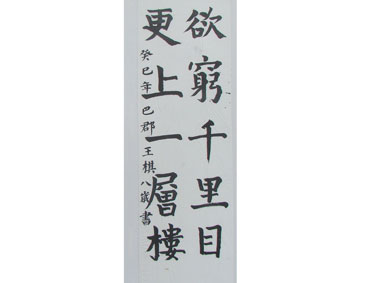 欲窮千里目
更上一層樓
癸巳年巴郡王棋八歲書